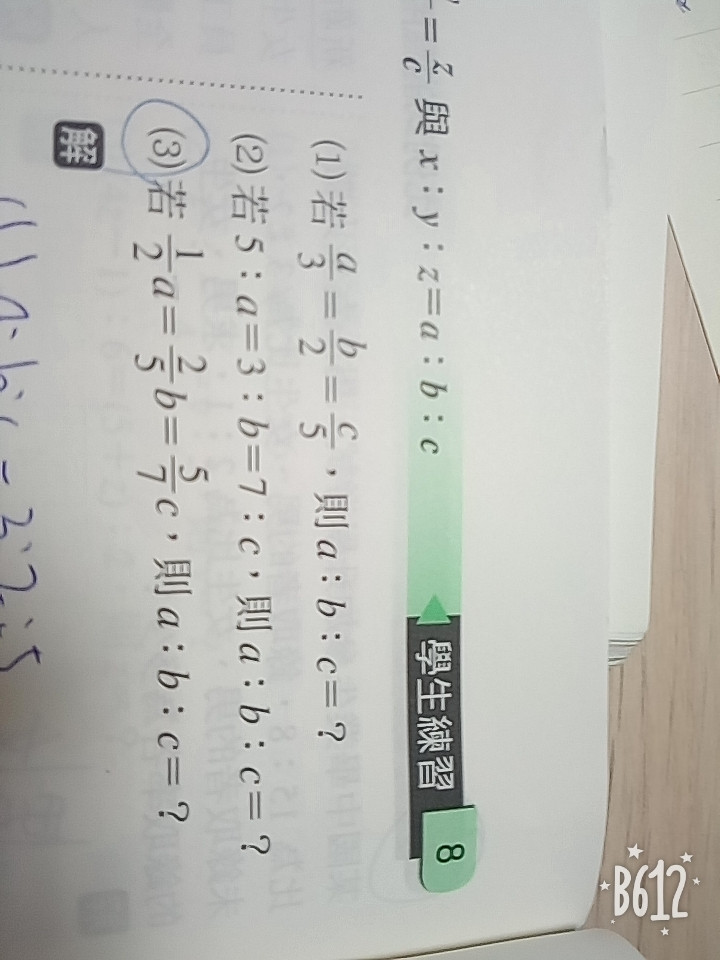 = z/c 與 x:y:z=a:b:c
學生練習 8
(1) 若 a/3 = b/2 = c/5,則 a:b:c=?
(2) 若 5:a=3:b=7:c,則 a:b:c=?
(3) 若 1/2 a= 2/5 b= 5/7 c,則 a:b:c=?
解
(1) a:b:c = 3:2:5
B612